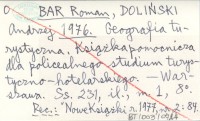 BAR Roman, DOLIŃSKI
Andrzej 1976. Geografia tu-
rystyczna. Książka pomocnicza
dla policealnego studium turys-
tyczno-hotelarskiego. — War-
szawa. Ss. 231, il., m 1, 8°.
Rec.: "Nowe Książki" r. 1977, nr 2: 84.